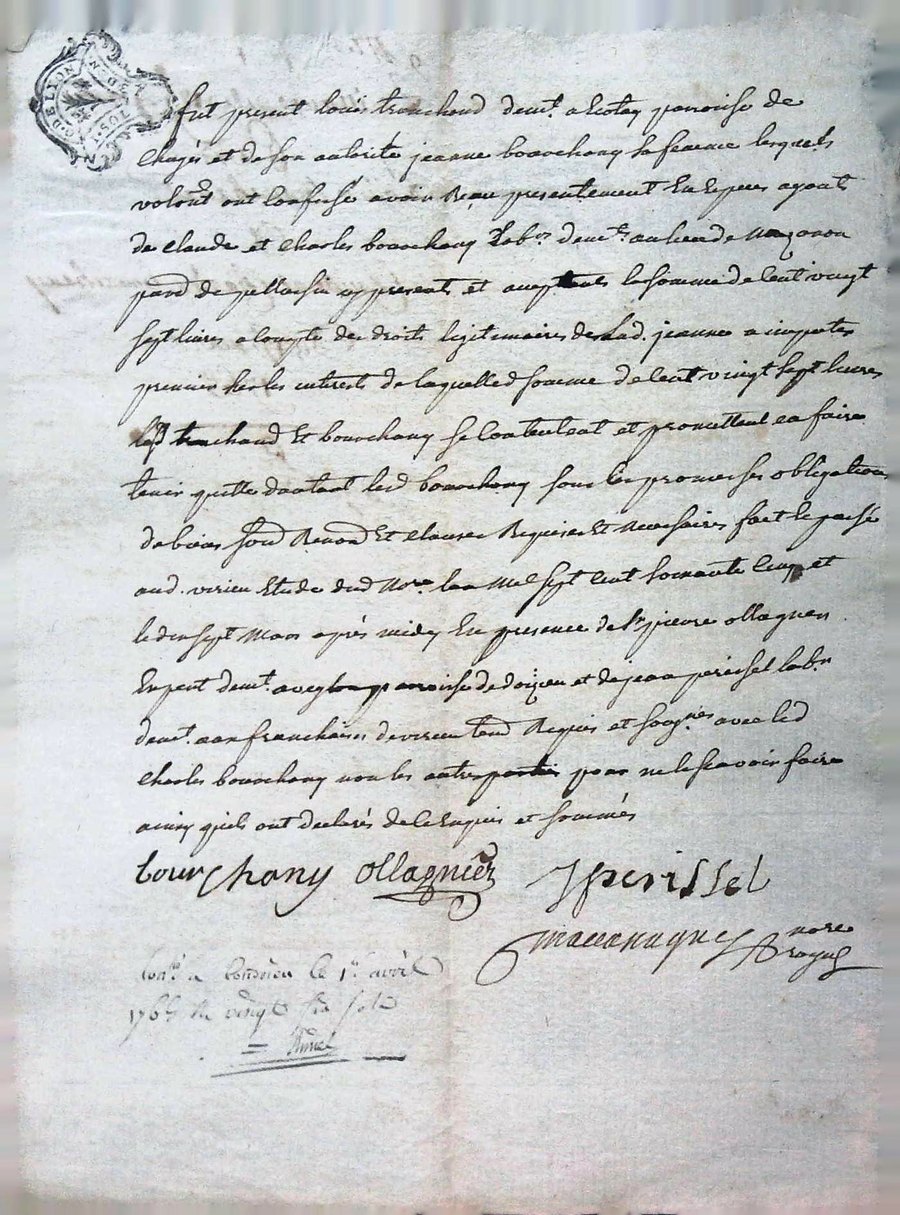 fut present louis tranchand demt. a lestay parroisse de
Chagés et de son autorité jeanne bourchany sa femme lesquels
volontt ont confessé avoir Reçu presentement En Especes ayant
de Claude et Charles bourchany labrs demts. au lieu de
parse de pellussin cy presents et aceptants la somme de Cent vingt
sept livres a Compte des droits legitimaires de lad. jeanne a imputer
premier sur les interests de laquelled somme de Cent vingt sept livres
lesd tranchand Et bourchany se Contentent et promettent en faire
tenir quitte d'autant lesd bourchany sous les promesses obligation
de biens soud Renond Et Clauses Requises Et Necessaires fait Et passé
aud. virieu Etude dud Nore. lan Mil sept Cent soixante Cinq et
le dix sept Mars après midy En presence de sr. pierre ollagnier
Expert demt. paroisse de doizieu et de jean perissel labr
demt. aux franchises de virieu Requis et soignés avec led
Charles bourchany non les autres parties pour ne le sçavoir faire
ainsy quils ont declarés de ce Enquis et sommés
bourchany ollagnier Jperissel
nore
royal
Conlé a Condrieu le 1er avril
1765 Reçu vingt six sols
G. DE LYON